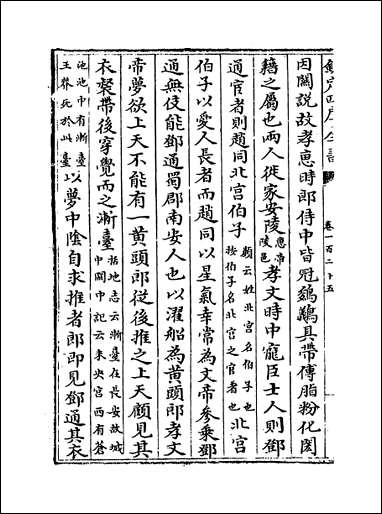 欽定四庫全書　卷一百二十五
因關説故孝惠時郎侍中皆冠鵔鸃具帶傅脂粉化閎
籍之屬也兩人徙家安陵惠帝陵邑孝文時中寵臣士人則鄧
通宦者則趙同北宮伯子顔云姓北宮名伯子也按伯子名北宮之宦者也北宮
伯子以愛人長者而趙同以星氣幸常為文帝參乗鄧
通無伎能鄧通蜀郡南安人也以濯船為黄頭郎孝文
帝夢欲上天不能有一黄頭郎從後推之上天顧見其
衣裻帶後穿覺而之漸臺括地志云漸臺在長安故城中關中記云未央宮西有蒼
池池中有漸臺王莽死於此臺以夢中陰自求推者郎即見鄧通其衣